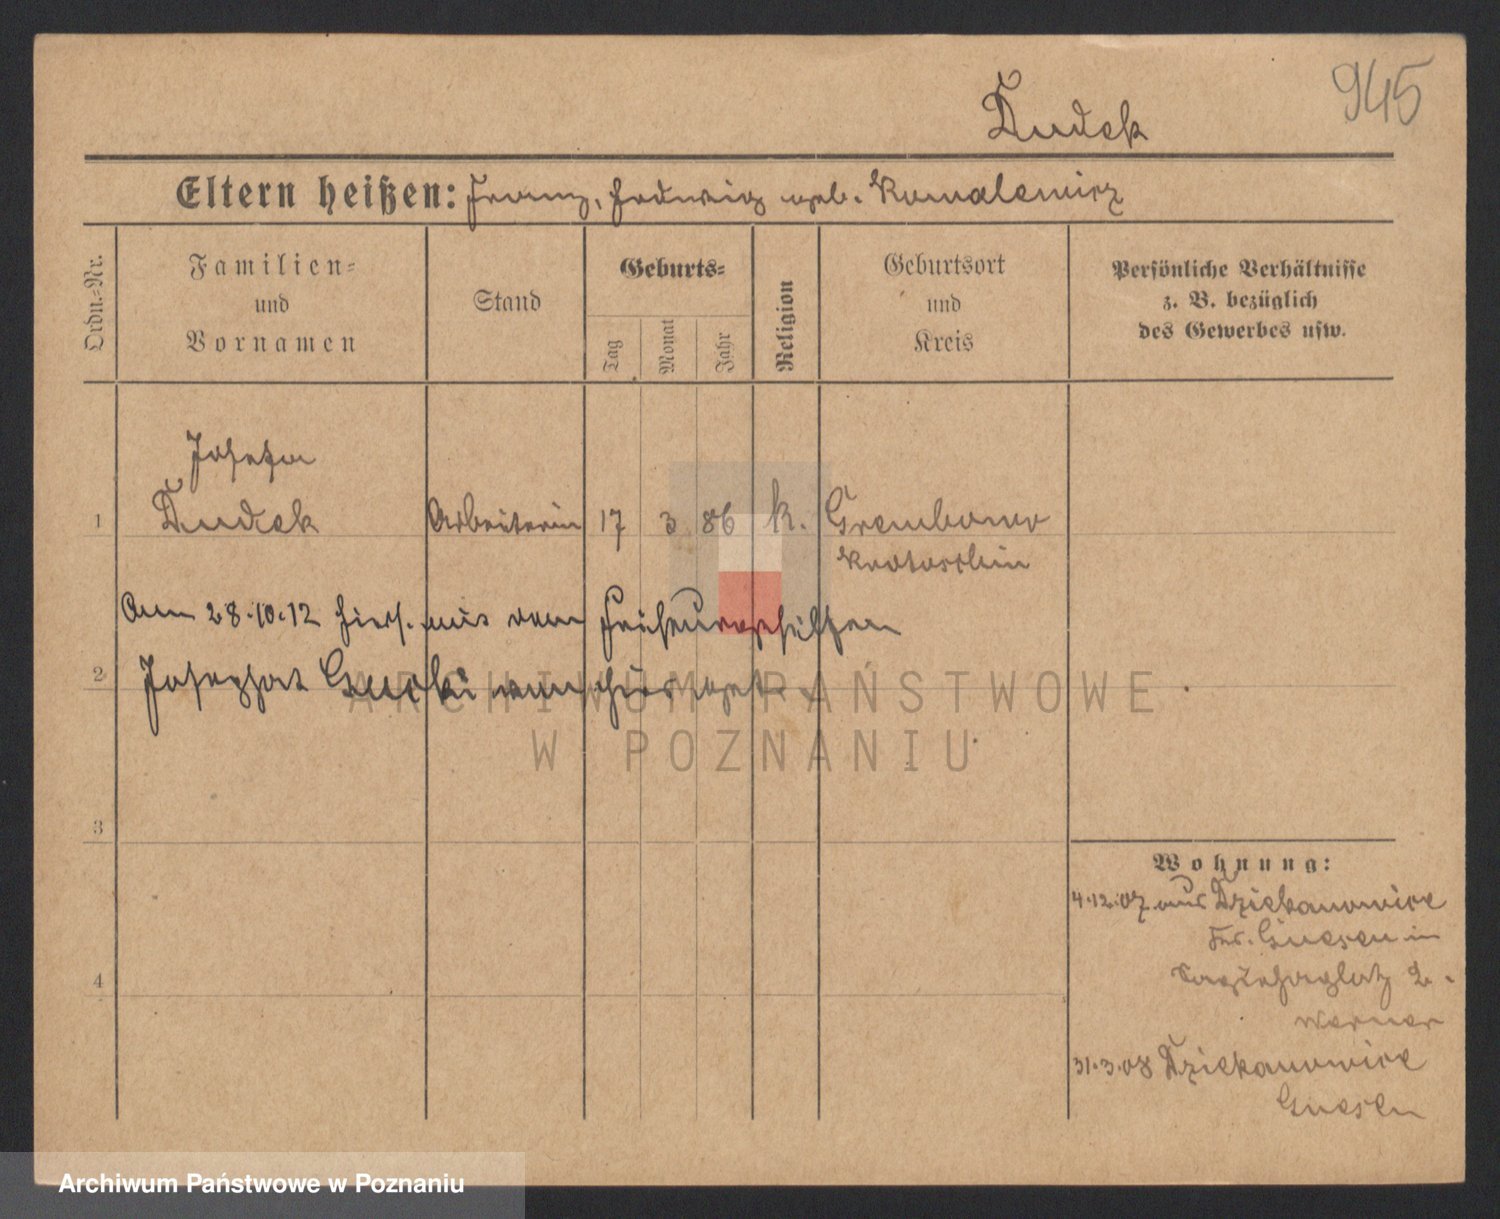 945
Dudek
Eltern heißen: Franz, Hedwig geb. Kowalewicz
Ordn.-Nr.
Familien-
und
Vornamen
Stand
Geburts-
Tag
Monat
Jahr
Religion
Geburtsort
und
Kreis
Persönliche Verhältnisse
z. B. bezüglich
des Gewerbes usw.
Josefa
1 Dudek Arbeiterin 17 3 86 k. Grembowo
Krotoschin
Am 28.10.12 hiers. mit dem
2 Josephat verh
ARCHIWUM PAŃSTWOWE
W POZNANIU
3
Wohnung:
4.12.07 aus Dziekanowice
Kr. Gnesen in
Sapiehaplatz 2.
Werner
4
31.3.08 Dziekanowice
Gnesen
Archiwum Państwowe w Poznaniu